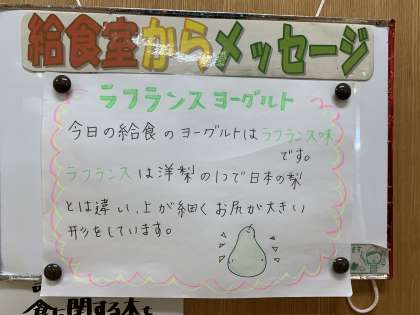 給食室からメッセージ
ラフランスヨーグルト
今日の給食のヨーグルトはラフランス味
です。
ラフランスは洋梨の1つで日本の梨
とは違い、上が細くお尻が大きい
形をしています。
食に関する本も